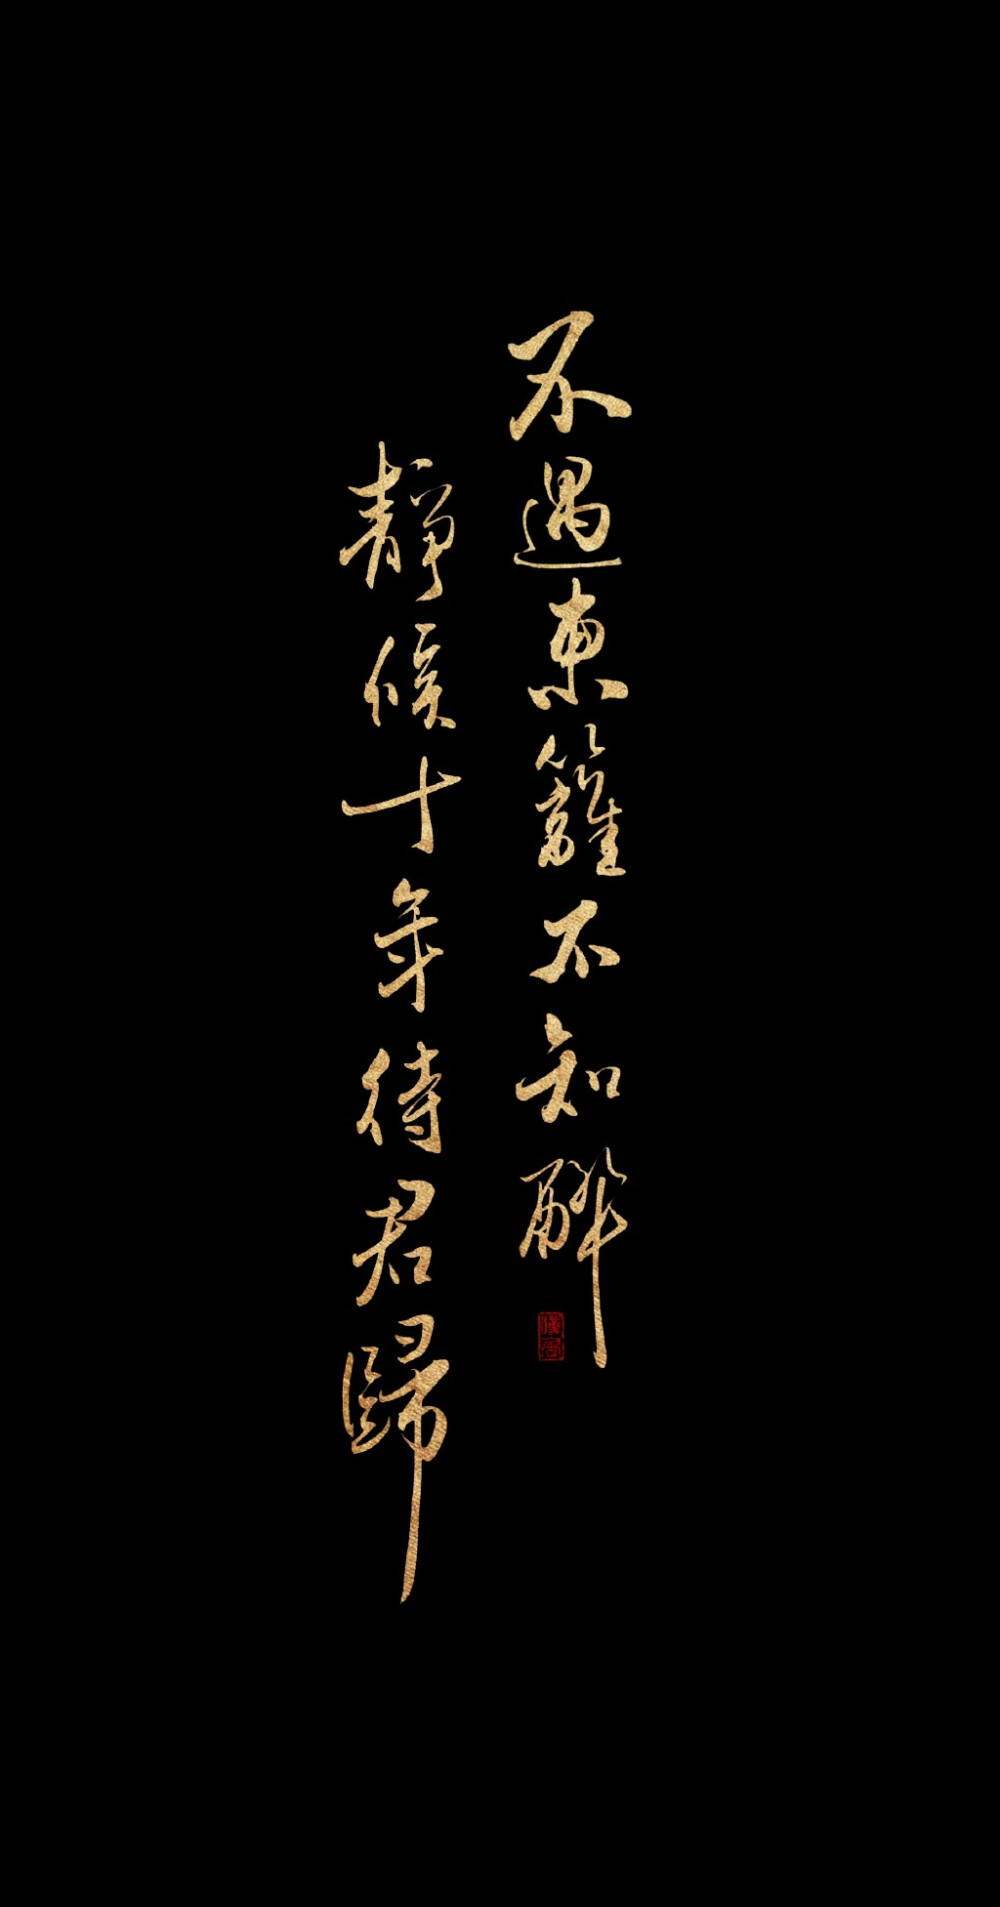 不遇東籬不知醉
靜候十年待君歸